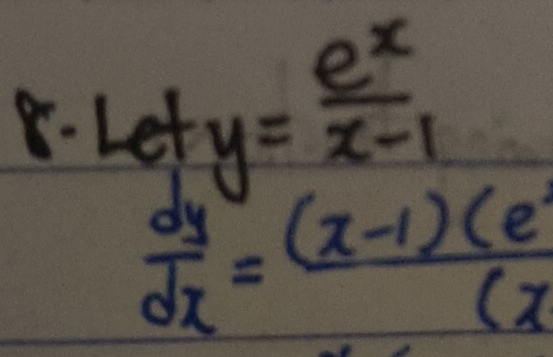 8. Let y = e^x / (x-1)
dy/dx = (x-1)(e^x / (x